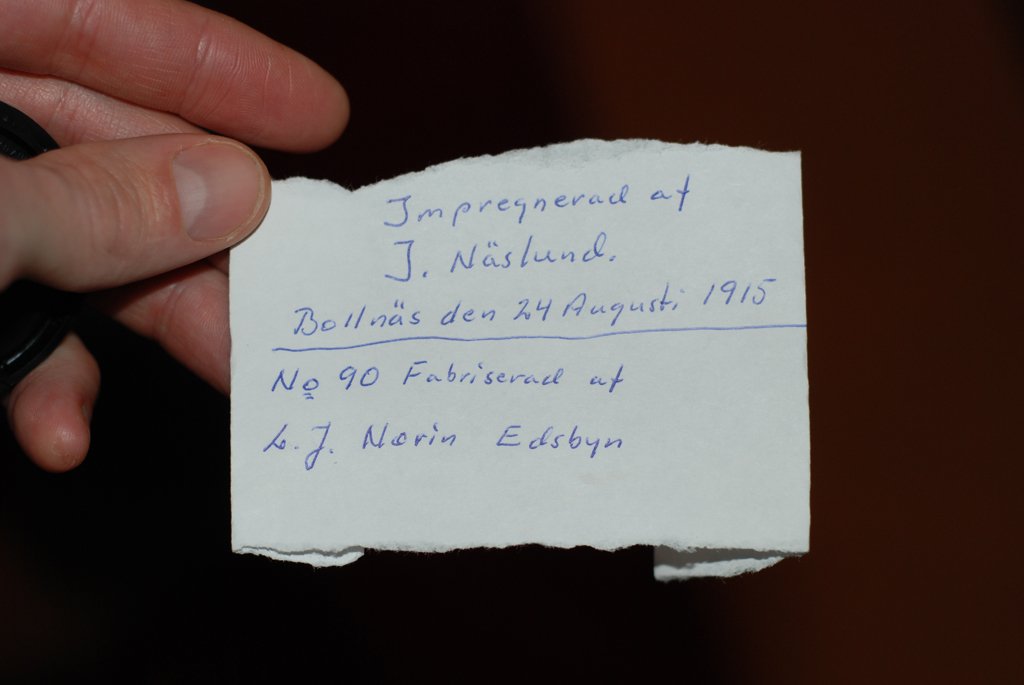 Impregnerad af
J. Näslund.
Bollnäs den 24 Augusti 1915
No 90 Fabriserad af
L. J. Norin Edsbyn